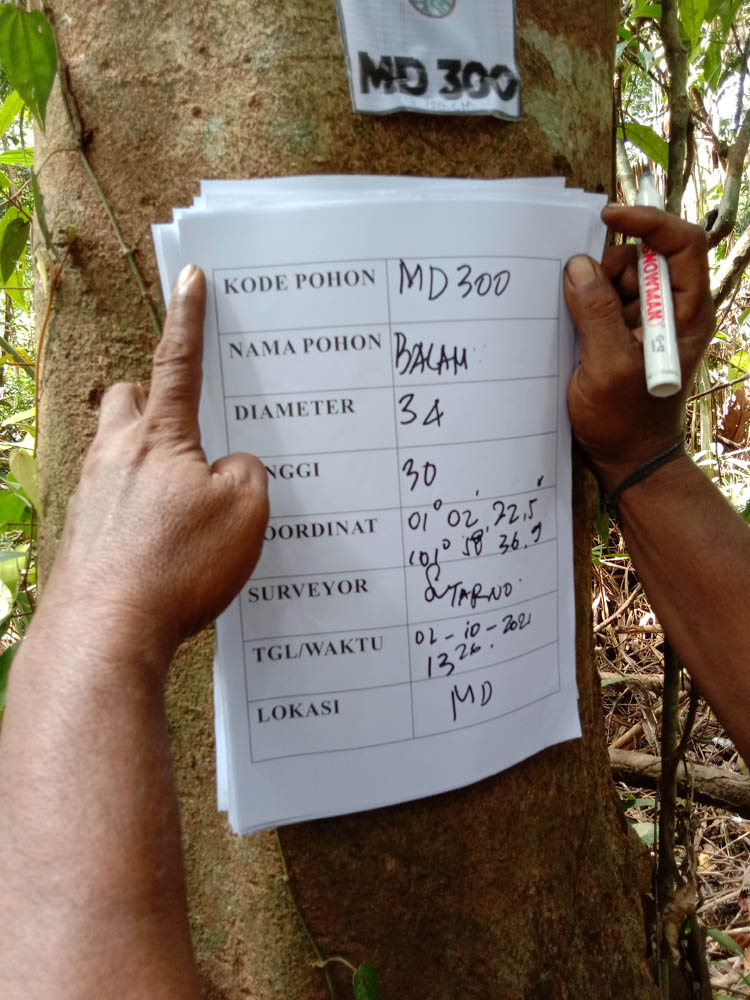 MD 300
100 CM
KODE POHON MD300
NAMA POHON BALAM
DIAMETER 34
NGGI 30
OORDINAT 01° 02' 22,5"
101° 58' 36.9
SURVEYOR SUTARNO
TGL/WAKTU 02-10-2021
1326.
LOKASI MD
SNOWMAN